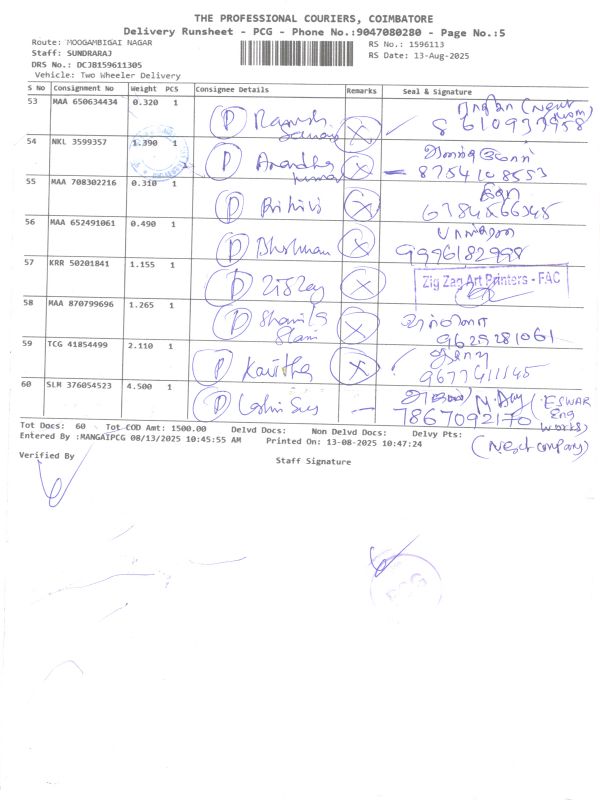 THE PROFESSIONAL COURIERS, COIMBATORE
Delivery Runsheet - PCG - Phone No.:9047080280 - Page No.:5
Route: MOOGAMBIGAI NAGAR
RS No.: 1596113
Staff: SUNDRARAJ
RS Date: 13-Aug-2025
DRS No.: DCJB159611305
Vehicle: Two Wheeler Delivery
S No Consignment No Weight PCS Consignee Details Remarks Seal & Signature
53 MAA 650634434 0.320 1 P Ramesh
54 NKL 3599357 1.390 1 P Anandha kumar 8754108553
55 MAA 708302216 0.310 1 P
56 MAA 652491061 0.490 1 P 9996182998
57 KRR 50201841 1.155 1 P ZigZag Zig Zag Art Printers - FAC
58 MAA 870799696 1.265 1 P 9629281061
59 TCG 41854499 2.110 1 P Kavitha 9677411145
60 SLM 376054523 4.500 1 P 7867092170 (ESWAR Eng works)
(Next company)
Tot Docs: 60 Tot COD Amt: 1500.00 Delvd Docs: Non Delvd Docs: Delvy Pts:
Entered By :MANGAIPCG 08/13/2025 10:45:55 AM Printed On: 13-08-2025 10:47:24
Verified By
Staff Signature
PCG